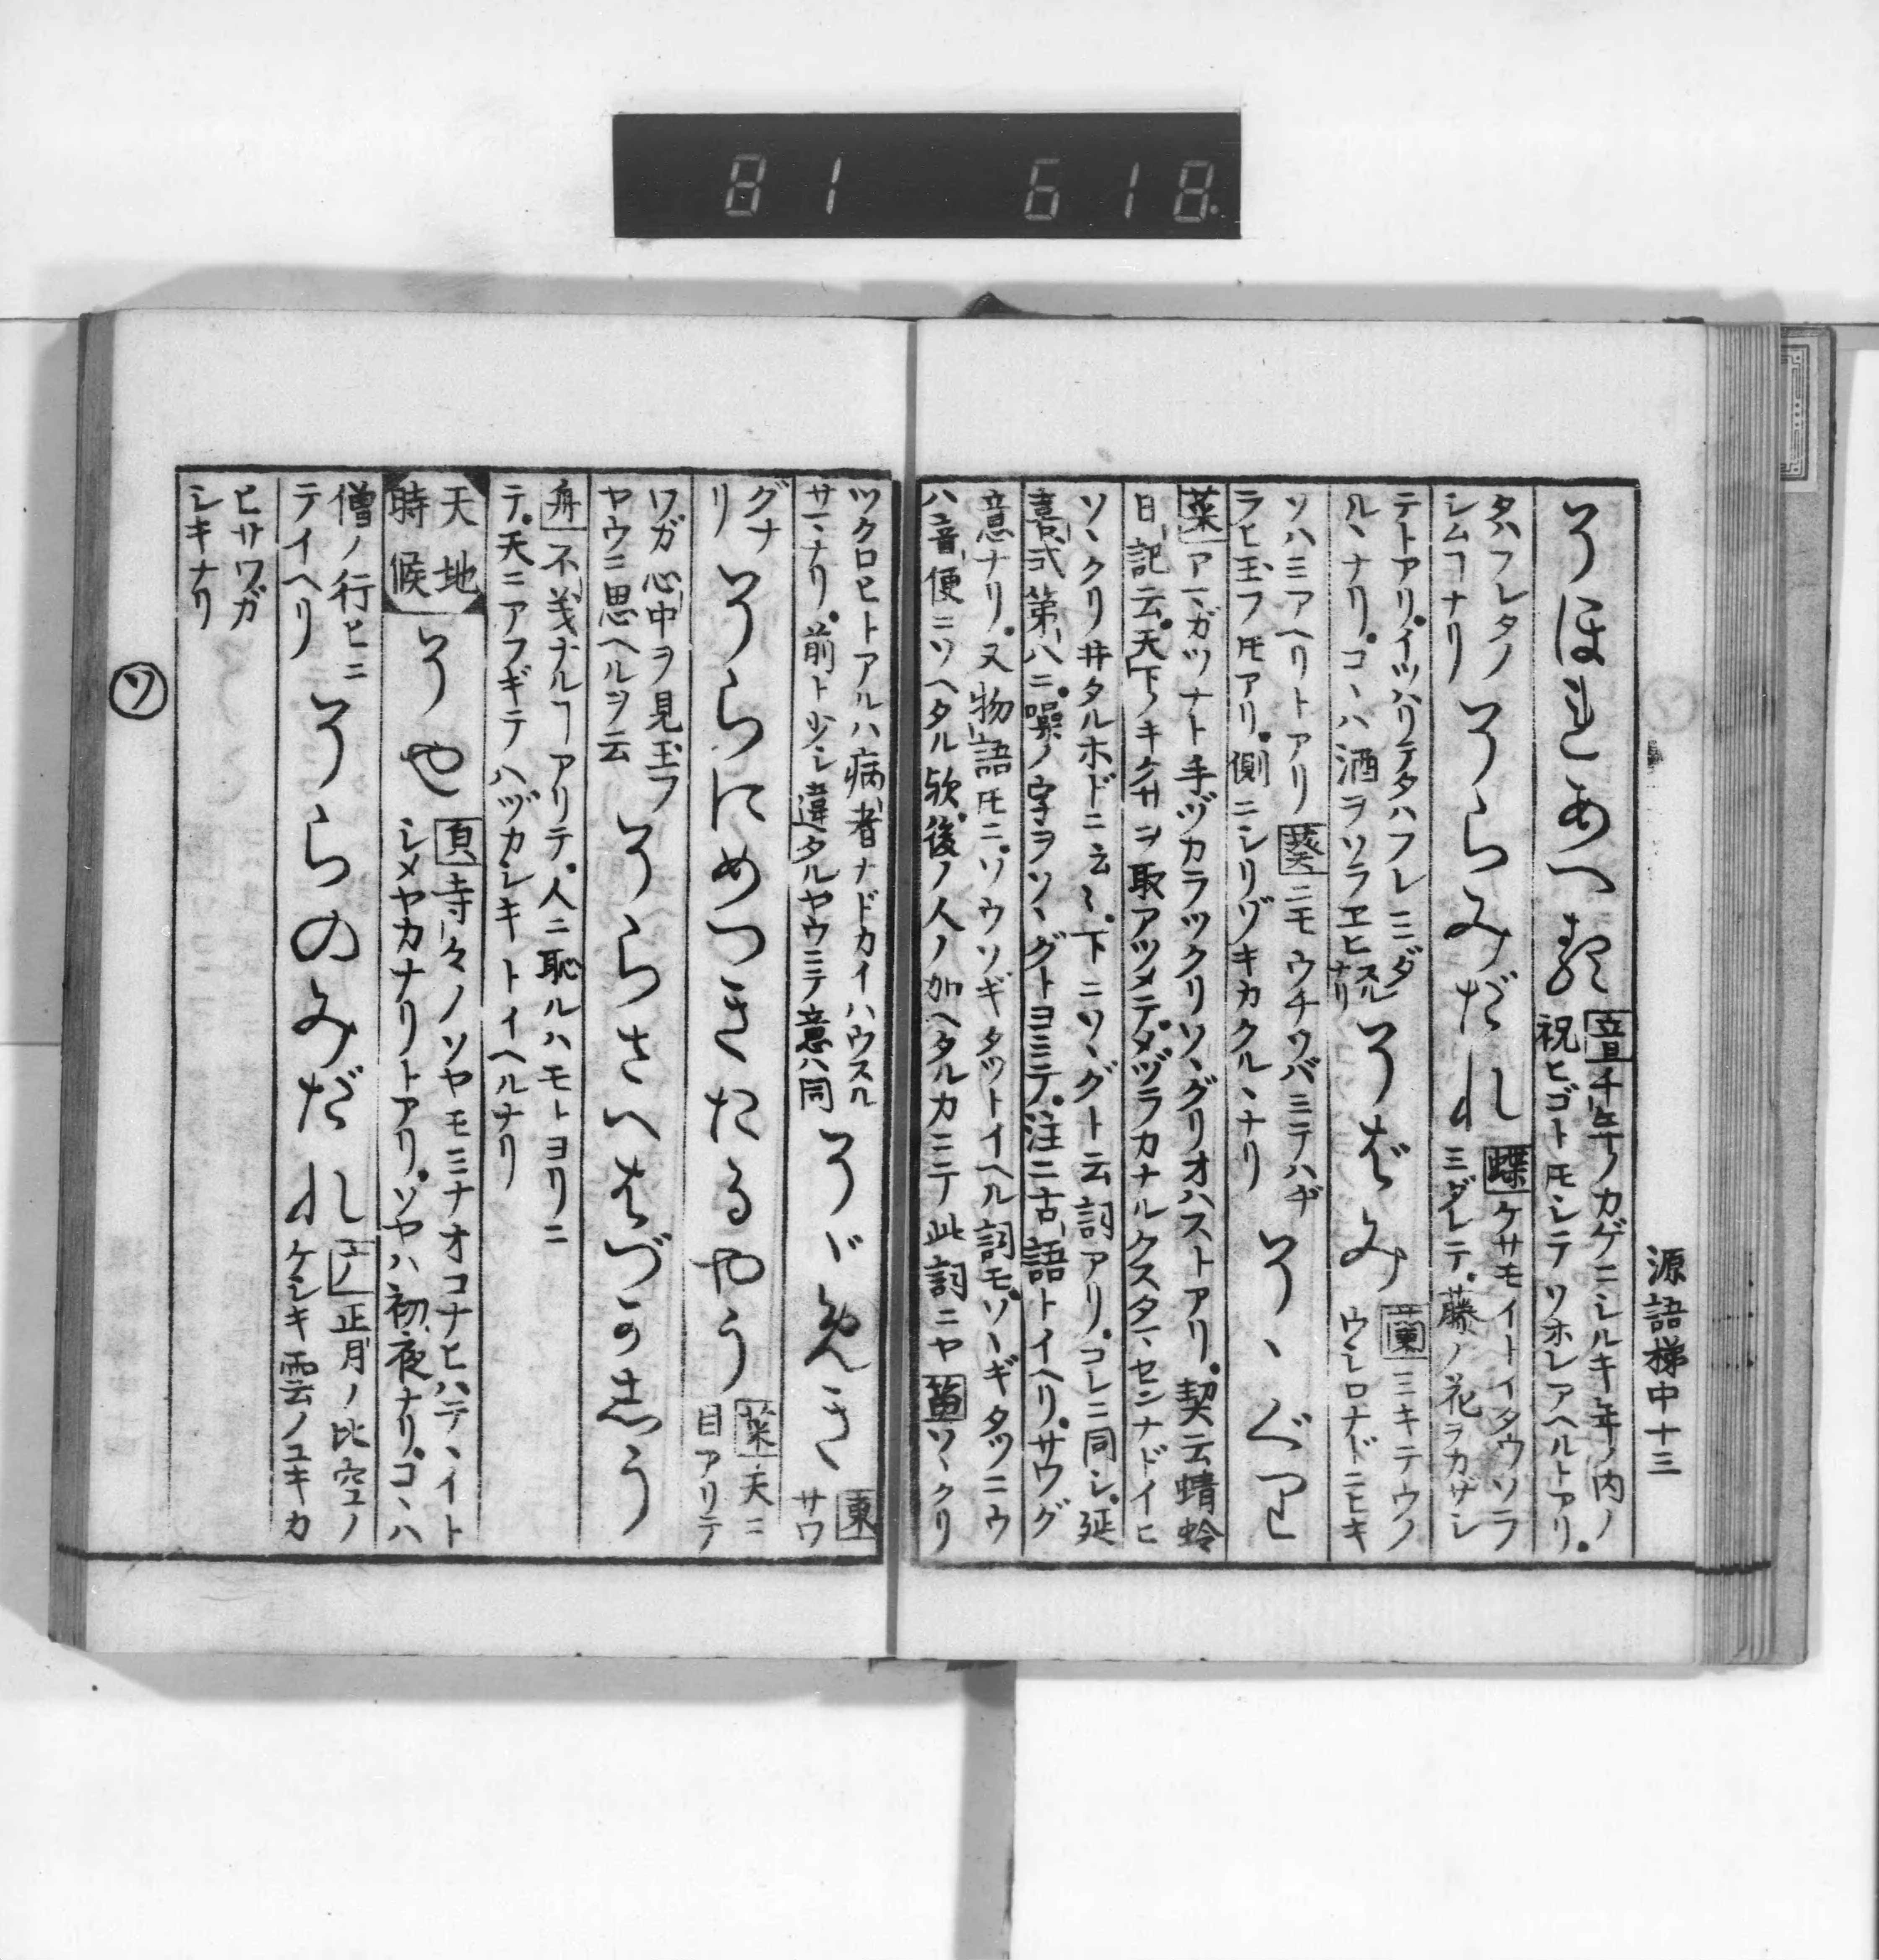 81 618
源語梯中十三
そほれあへる
音
千年ノカゲニシルキ年ノ内ノ
祝ヒゴトモシテソホレアヘルトアリ。
タハフレタノ
シムコナリ
そらみだれ
蝶
ケサモイトイタウソラ
ミダレテ。藤ノ花ヲカザシ
テトアリ。イツハリテタハフレミダ
ルヽナリ。コヽハ酒ヲソラヱヒスル
ナリ
そばみ
蘭
ミキテウノ
ウシロナドニヒキ
ソハミアヘリトアリ
葵
ニモウチソバミテハヂ
ラヒ玉フ𪜈アリ。側ニシリゾキカクルヽナリ
そゝぐつと
菜
アマガツナト手ヅカラツクリソヽグリオハストアリ。契云蜻蛉
日記云。天下ノキクサヲ取アツメテ。メヅラカナルクスタマセンナドイヒ
ソヽクリ井タルホドニ云〻。下ニソヽグト云詞アリ。コレニ同シ。延
喜式第八ニ。噪ノ字ヲソヽグトヨミテ。注ニ古語トイヘリ。サワグ
意ナリ。又物語𪜈ニ。ソウソギタツトイヘル詞モ。ソヽギタツニウ
ハ音便ニソヘタル欤。後ノ人ノ加ヘタルカニテ此詞ニヤ
ソヽクリ
ツクロヒトアルハ病者ナドカイハウスル
サマナリ。前ト少シ違タルヤウニテ意ハ同
そゞめき
東
サワ
グナ
リ
そらにめつきたるやう
菜
天ニ
目アリテ
ワガ心中ヲ見玉フ
ヤウニ思ヘルヲ云
そらさへはづかしう
舟
不義ナルヿアリテ。人ニ恥ルハモトヨリニ
テ。天ニアフギテハヅカシキトイヘルナリ
天地
時候
そや
寺々ノソヤモミナオコナヒハテヽイト
シメヤカナリトアリ。ソヤハ初夜ナリ。コヽハ
僧ノ行ヒニ
テイヘリ
そらのみだれ
正月ノ比空ノ
ケシキ雲ノユキカ
ヒサワガ
シキナリ
ソ